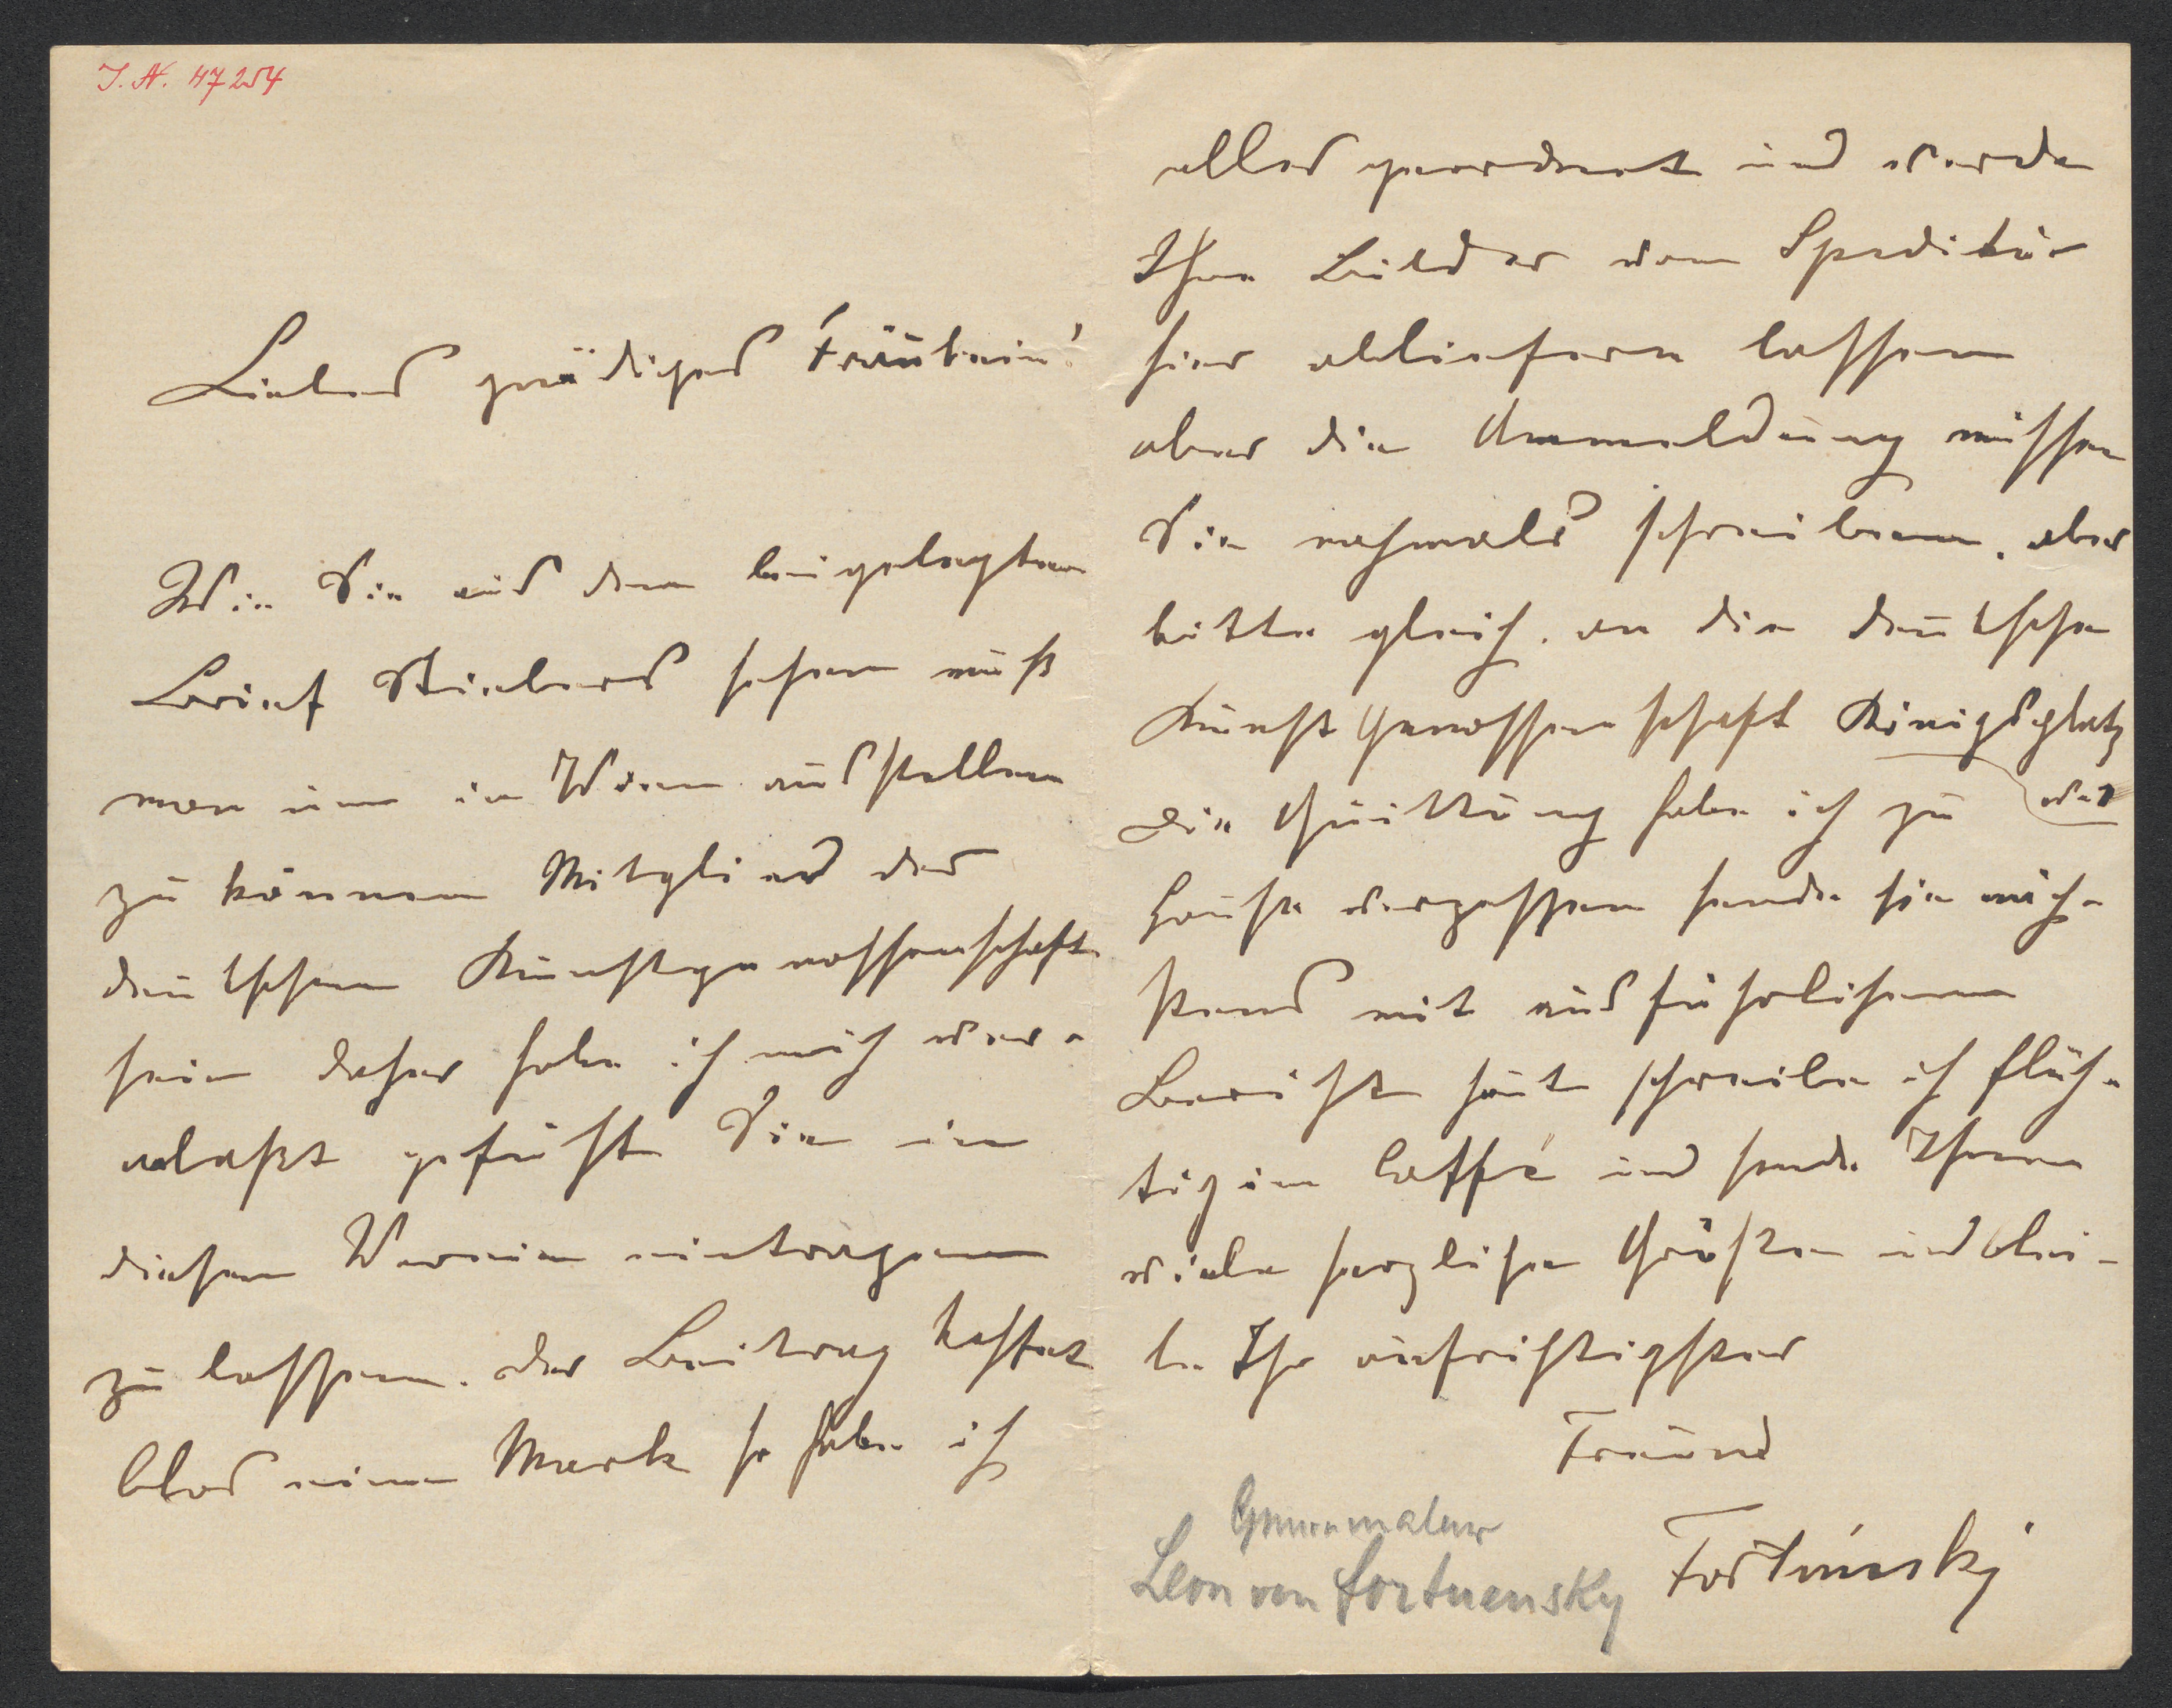 I. N. 47254
Liebes gnädiges Fräulein!
Wie Sie aus dem beigelegten
Brief Stiebers sehen muß
man um in Wien ausstellen
zu können Mitglied der
deutschen Kunstgenossenschaft
sein daher habe ich mich ver-
anlaßt gefühlt Sie in
diesem Verein eintragen
zu lassen. der Beitrag kostet
blos einen Mark so habe ich
alles geordnet und werde
Ihre Bilder vom Speditör
hier abliefern lassen
aber die Anmeldung müssen
Sie nochmals schreiben. aber
bitte gleich. an die deutsche
Kunst Genossenschaft Königsplatz
die Quittung habe ich zu
Hause vergessen sende sie näch-
stens mit ausführlichem
Bericht heute schreibe ich flüch-
tig im Caffé und sende Ihnen
viele herzliche Grüße und blei-
be Ihr aufrichtigster
Freund
Fortunsky
Genremaler
Leon von Fortuensky